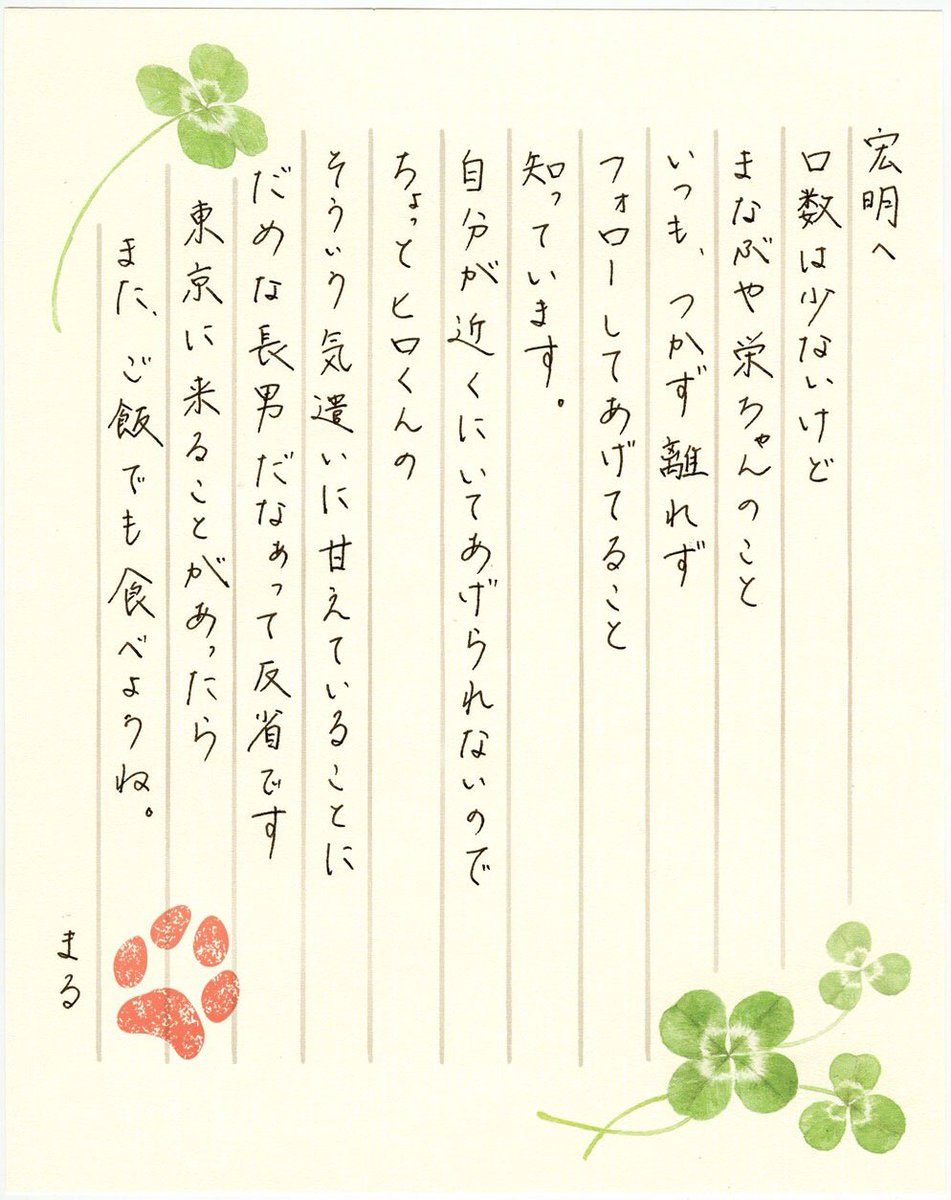 宏明へ
口数は少ないけど
まなぶや栄ちゃんのこと
いつも、つかず離れず
フォローしてあげてること
知っています。
自分が近くにいてあげられないので
ちょっとヒロくんの
そういう気遣いに甘えていることに
だめな長男だなぁって反省です
東京に来ることがあったら
また、ご飯でも食べようね。
まる